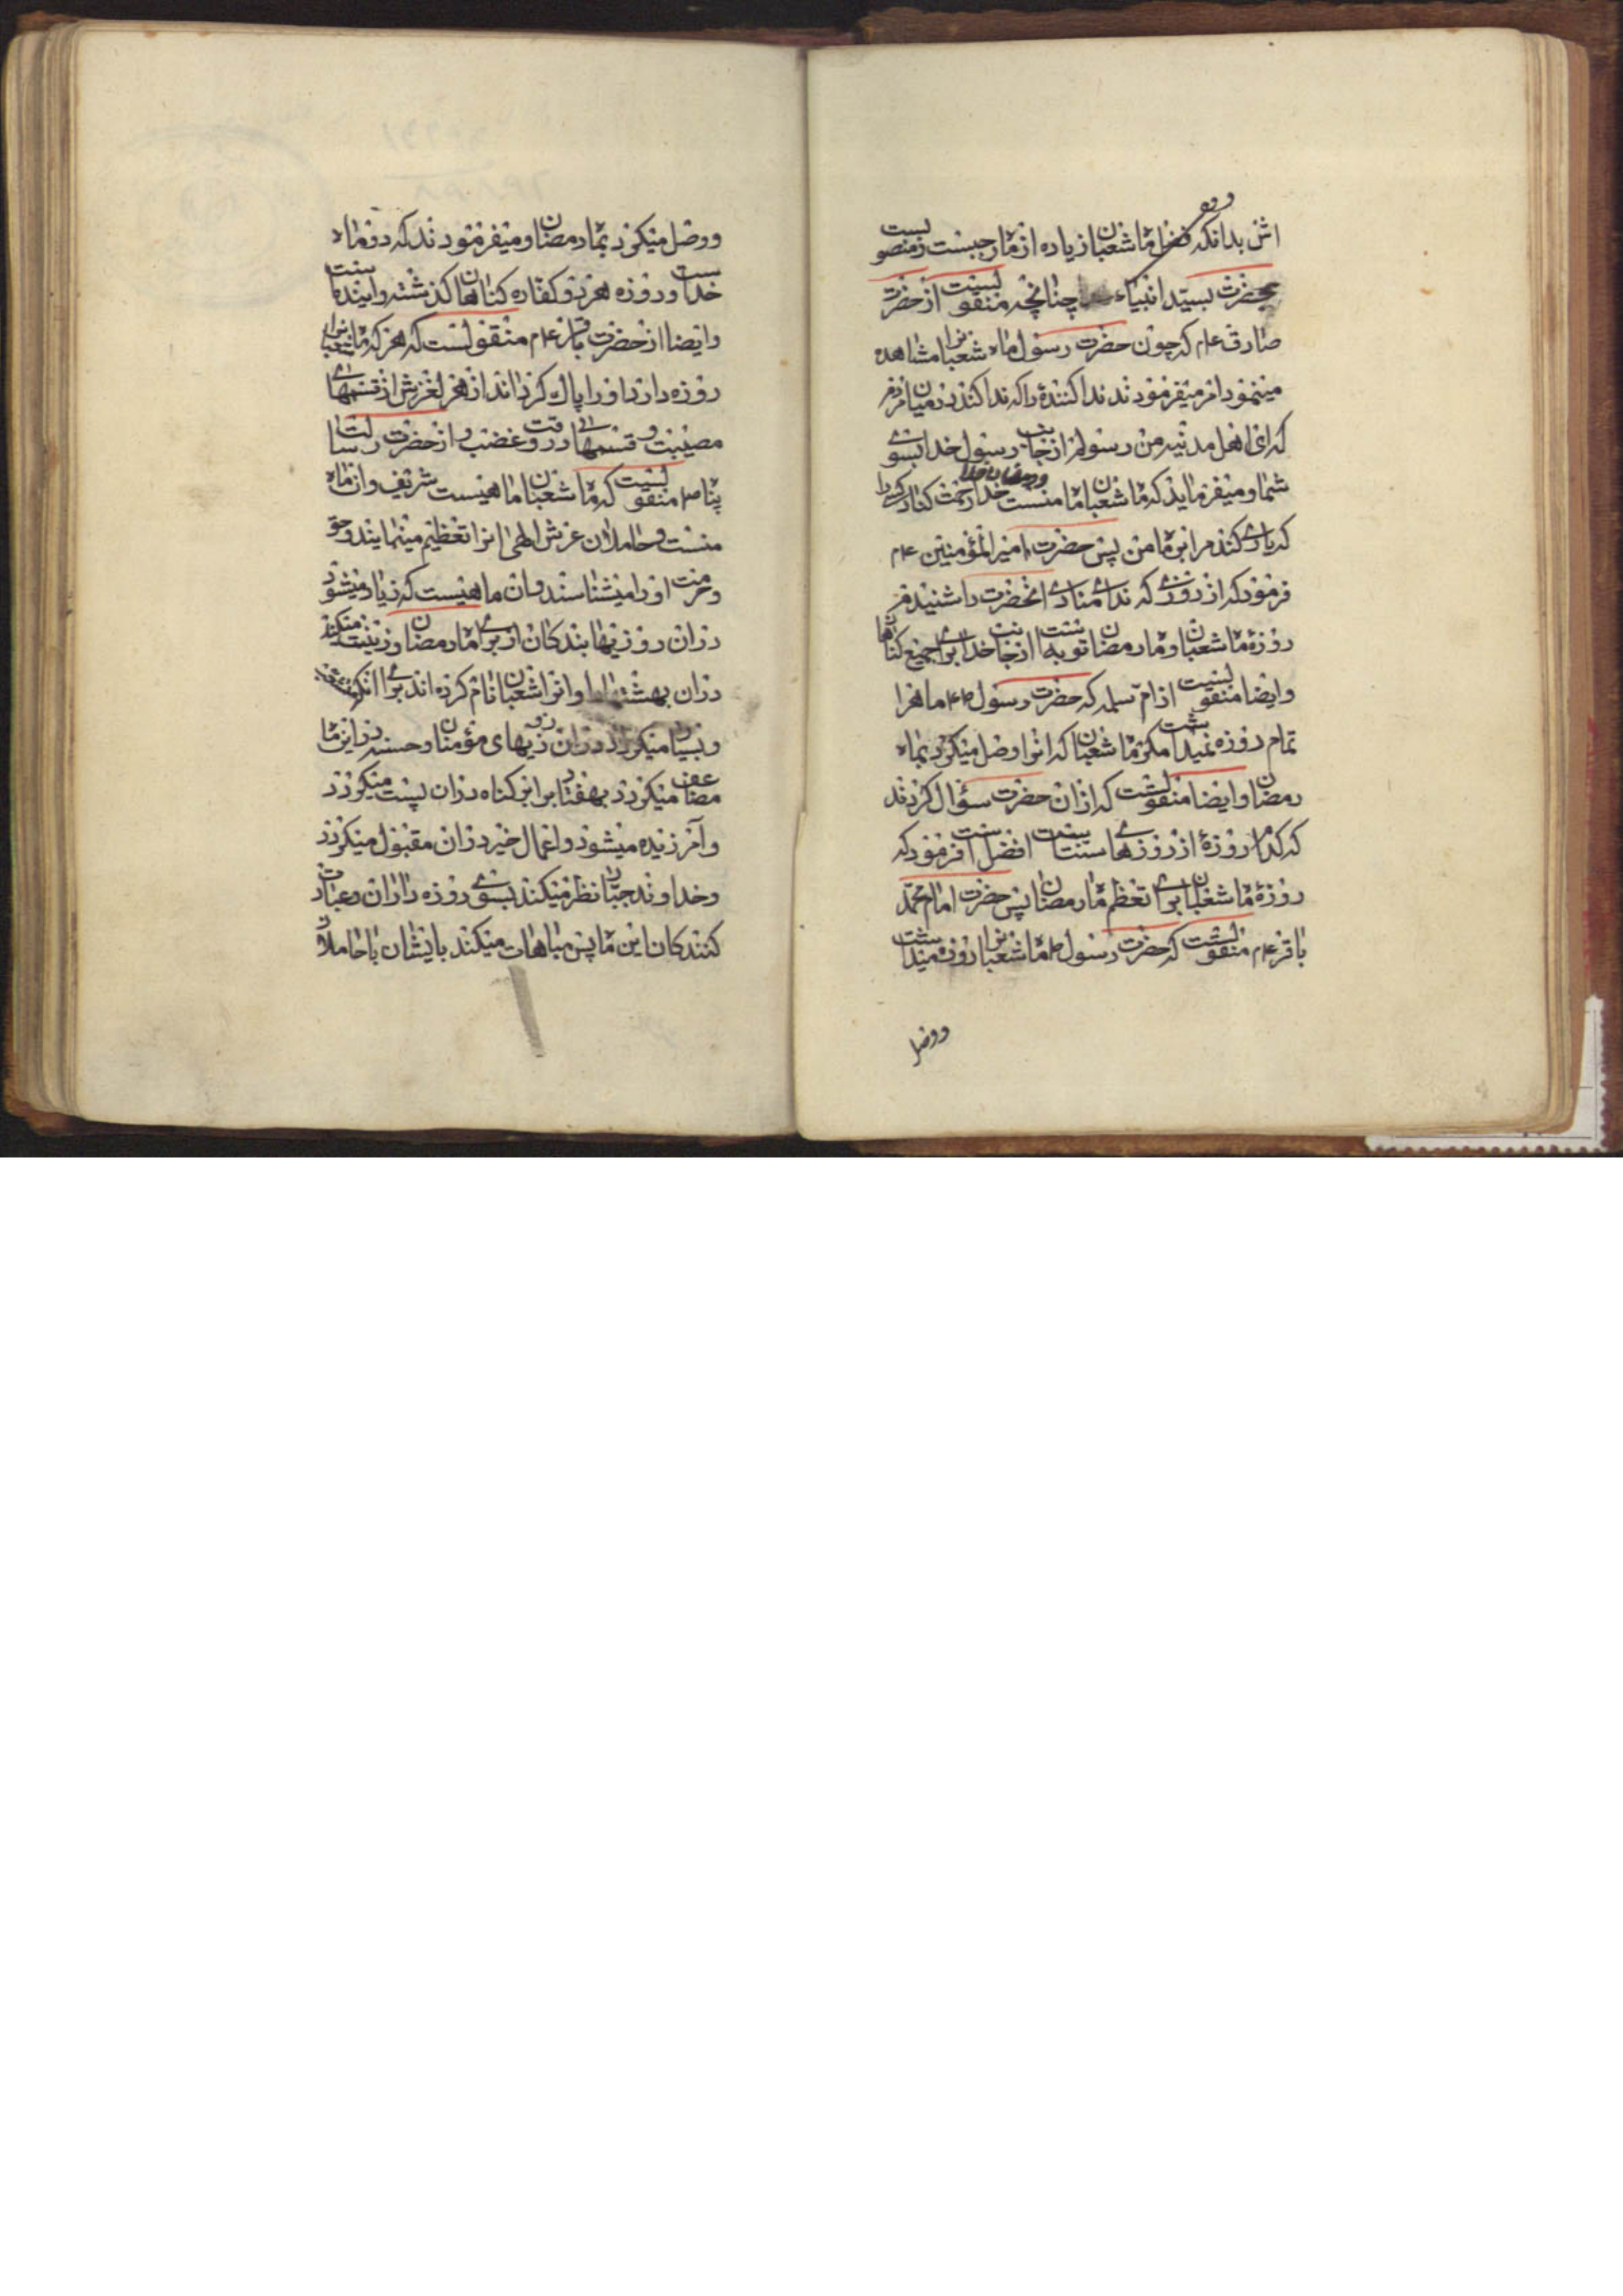 اش بدانکه فضل ماه شعبان زیاده از ماه رجبست و منصوبست
بحضرت سید انبیاء چنانچه منقولست از حضرت
صادق ءم که چون حضرت رسول ماه شعبانرا مشاهده
مینمود امر میفرمودند ندا کنندۀ را که ندا کند در میان مردم
که ای اهل مدینه من رسولم از جانب رسول خدا بسوی
شما و میفرماید که ماه شعبان ماه منست و رمضان ماه خدا خدا رحمت کناد کسی را
که یاری کند مرا بر ماه من پس حضرت امیر المؤمنین ءم
فرمود که از روزی که ندای منادی انحضرت را شنیدم
روزۀ ماه شعبان و ماه رمضان توبه است از جانب خدا برای جمیع گناهان
و ایضا منقولست از ام سلمه که حضرت رسول صم ماهرا
تمام روزه نمیداشت مگر ماه شعبان که انرا وصل میکرد بماه
رمضان و ایضا منقولست که ازان حضرت سؤال کردند
که کدام روزۀ از روزهای سنت افضل است فرمود که
روزۀ ماه شعبان برای تعظیم ماه رمضان پس حضرت امام محمد
باقر ءم منقولست که حضرت رسول ص ماه شعبانرا روزه میداشت
ووصل
ووصل میکرد بماه رمضان و میفرمودند که دو ماه
خداست و روزه هر دو کفاره کناهان کذشته و اینده است
و ایضا از حضرت باقر ءم منقولست که هر که ماه شعبانرا
روزه دارد او را پاک کرداند از هر لغزش از قسمهای
مصیبت و قسمهای در وقت غضب و از حضرت رسالت
پناه صم منقولست که ماه شعبان ماهیست شریف وان ماه
منست و حاملان عرش الهی انرا تعظیم مینمایند و حق
و حرمت اورا میشناسند وان ماهیست که زیاد میشود
دران روزیها بندکان از برای ماه رمضان و زینت میکند
دران بهشتها و انرا شعبان نام کرده اند برای انکه
و بسیار میکردد دران روزیهای مؤمنان و حسنه در این ماه
مضاعف میکردد بهفتاد برابر کناه دران پست میکردد
و آمرزیده میشود و اعمال خیر دران مقبول میکردد
و خداوند جبار نظر میکند بسوی روزه داران و عبادت
کنندکان این ماه پس مباهات میکند بایشان با حاملان